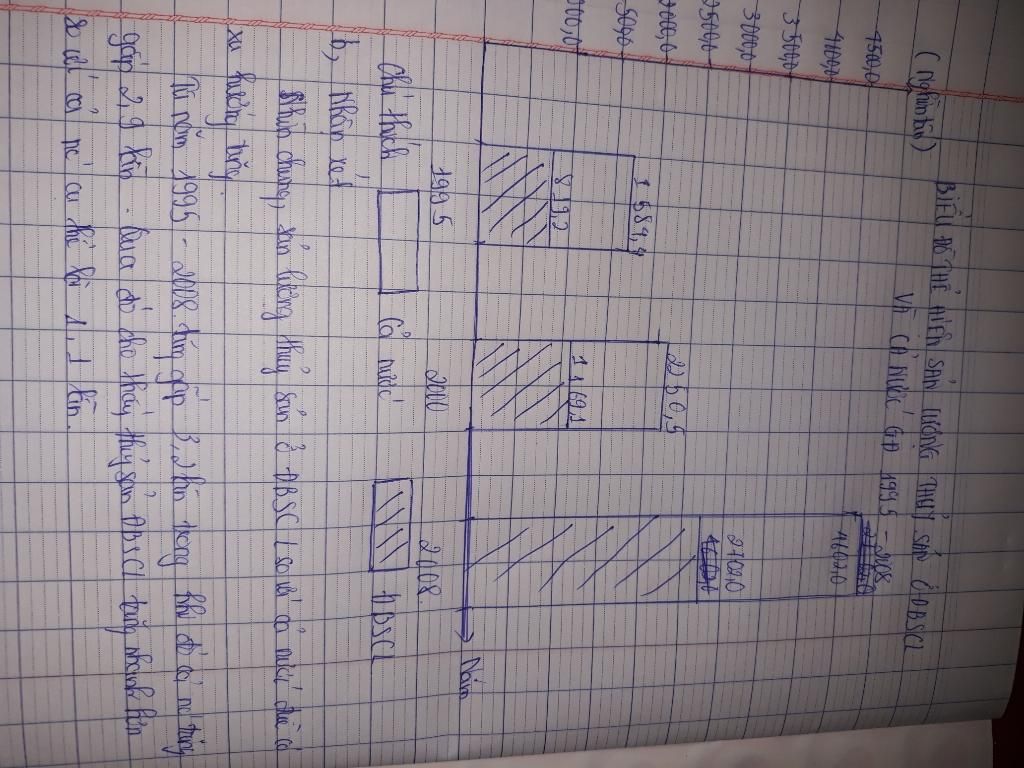 Biểu đồ thể hiện sản lượng thuỷ sản ở ĐBSCL
Và cả nước gđ 1995 - 2008
(nghìn tấn)
4500,0
4000,0
3500,0
3000,0
2500,0
2000,0
1 584,4
819,2
2 250,5
1 169,1
4600,0
2700,0
Năm
1995
2008
Chú thích
Cả nước
ĐBSCL
b, Nhận xét
Nhìn chung, sản lượng thuỷ sản ở ĐBSCL so với cả nước đều có
xu hướng tăng.
Từ năm 1995 - 2008 tăng gấp 3,2 lần trong khi đó cả nc tăng
gấp 2,9 lần. Qua đó cho thấy thuỷ sản ĐBSCL tăng nhanh hơn
so với cả nc cụ thể là 1,1 lần.